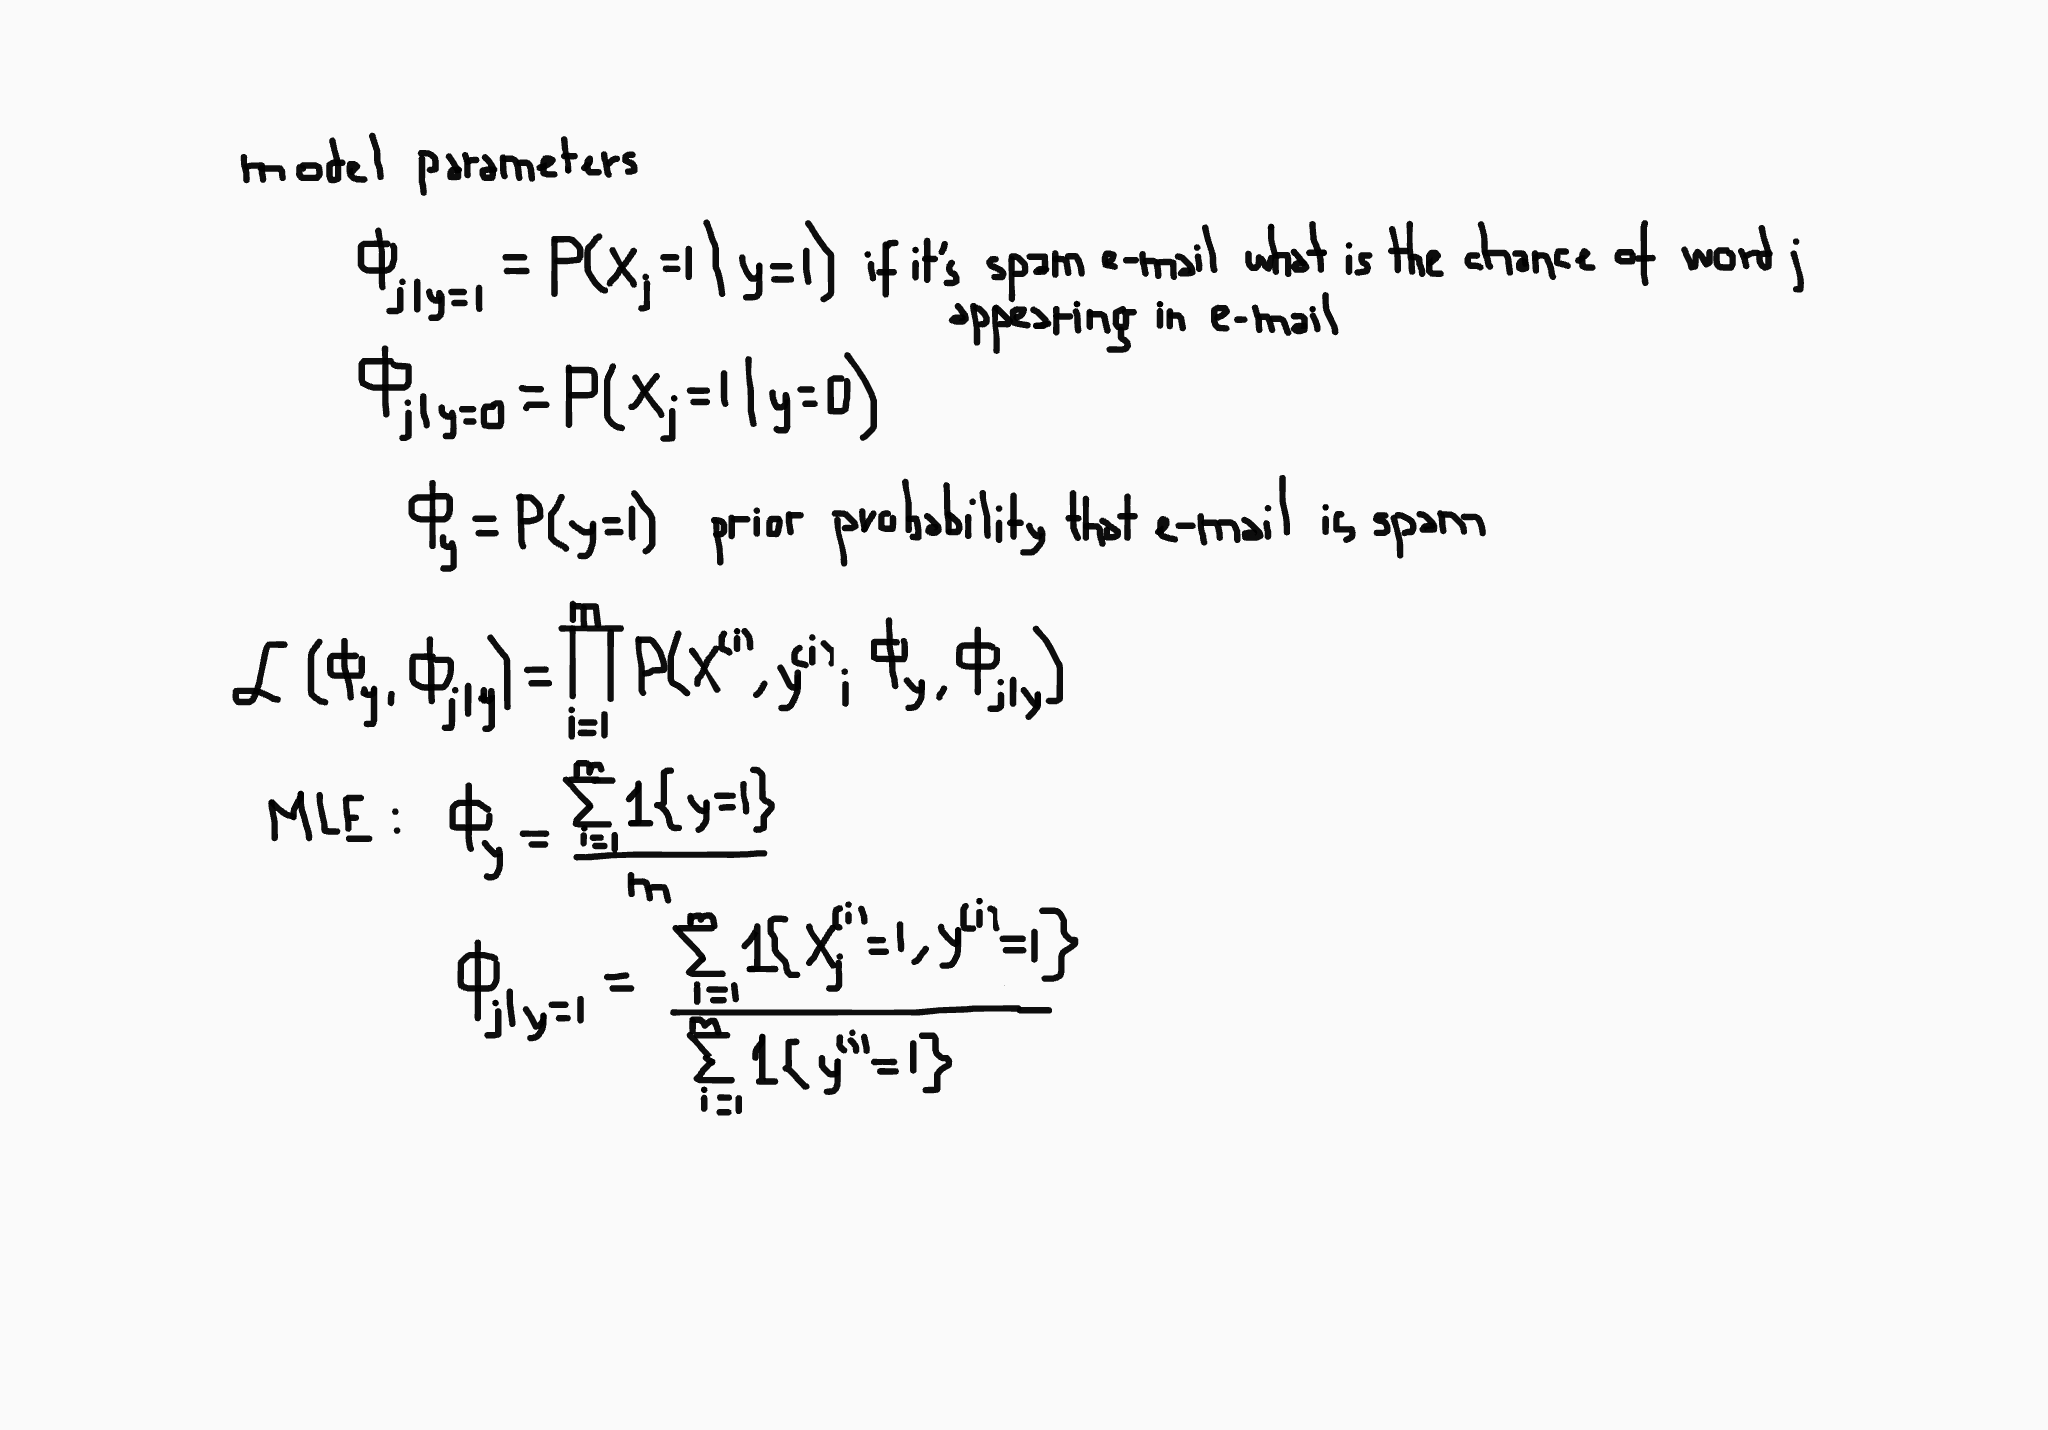 model parameters
ϕ_{j|y=1} = P(x_j=1|y=1) if it's spam e-mail what is the chance of word j
appearing in e-mail
ϕ_{j|y=0} = P(x_j=1|y=0)
ϕ_y = P(y=1) prior probability that e-mail is spam
ℒ(ϕ_y, ϕ_{j|y}) = ∏_{i=1}^{m} P(x^{(i)}, y^{(i)}; ϕ_y, ϕ_{j|y})
MLE: ϕ_y = \frac{∑_{i=1}^{m} 1{y=1}}{m}
ϕ_{j|y=1} = \frac{∑_{i=1}^{m} 1{x_j^{(i)}=1, y^{(i)}=1}}{∑_{i=1}^{m} 1{y^{(i)}=1}}